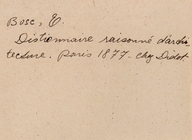 Bosc, E.
Dictionnaire raisonné d'archi
tecture. Paris 1877. chez Didot